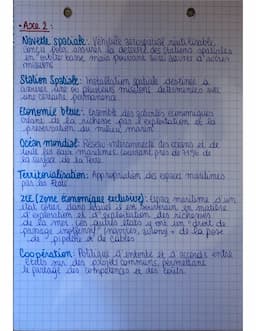 • Axe 2 :
Navette spatiale : Véhicule aérospatial réutilisable,
conçu pour assurer la desserte des stations spatiales
en orbite basse mais pouvant aussi assurer d'autres
missions
Station Spatiale : Installation spatiale destinée à
assurer une ou plusieurs missions déterminées avec
une certaine permanence
Economie bleue : Ensemble des activités économiques
liées de la richesse par l'exploitation et la
préservation du milieu marin
Océan mondial : Réseau interconnecté des océans et de
toute les eaux maritimes, couvrant près de 71% de
la surface de la Terre
Territorialisation : Appropriation des espaces maritimes
par les Etats
ZEE (zone économique exclusive) : Espace maritime d'un
état côtier dans lequel il est souverain en matière
d'exploration et d'exploitation des richesses
de la mer. Les autres états y ont un "droit de
passage inoffensif" (navires, avions) + de la pose
de pipeline et de câbles
Coopération : Politique d'entente et d'accords entre
Etats sur des projets communs, permettant
le partage des compétences et des coûts.